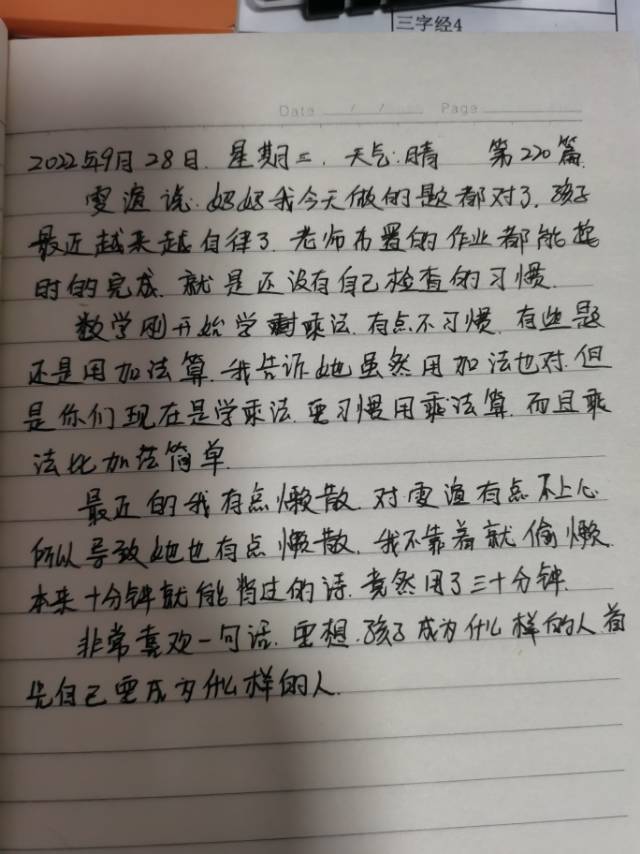 三字经4
Date / / Page
2022年9月28日. 星期三. 天气:晴 第220篇.
雯渲说:妈妈我今天做的题都对了.孩子
最近越来越自律了.老师布置的作业都能按
时的完成.就是还没有自己检查的习惯.
数学刚开始学乘法.有点不习惯.有些题
还是用加法算.我告诉她虽然用加法也对.但
是你们现在是学乘法.要习惯用乘法算.而且乘
法比加法简单.
最近的我有点懒散.对雯渲有点不上心
所以导致她也有点懒散.我不靠着就偷懒.
本来十分钟就能背过的诗.竟然用了三十分钟.
非常喜欢一句话.要想.孩子成为什么样的人首
先自己要成为什么样的人.